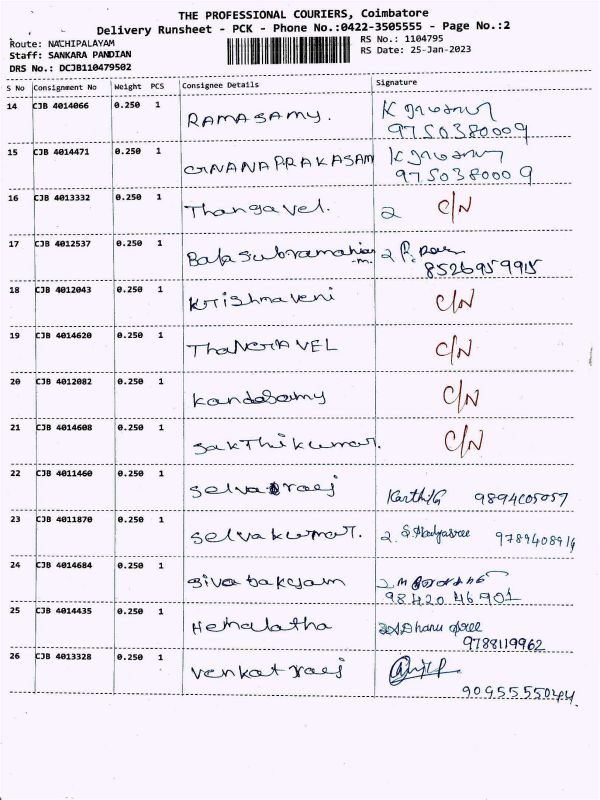 THE PROFESSIONAL COURIERS, Coimbatore
Delivery Runsheet - PCK - Phone No.:0422-3505555 - Page No.:2
Route: NACHIPALAYAM RS No.: 1104795
Staff: SANKARA PANDIAN RS Date: 25-Jan-2023
DRS No.: DCJB110479502
S No Consignment No Weight PCS Consignee Details Signature
14 CJB 4014066 0.250 1 RAMASAMY. K
9750380009
15 CJB 4014471 0.250 1 GNANAPRAKASAM K
9750380009
16 CJB 4013332 0.250 1 Thangavel. 2 C/N
17 CJB 4012537 0.250 1 Balasubramanian 2
-m. 8526959915
18 CJB 4012043 0.250 1 Krishnaveni C/N
19 CJB 4014620 0.250 1 ThaNGAVEL C/N
20 CJB 4012082 0.250 1 Kandasamy C/N
21 CJB 4014608 0.250 1 sakThikumar. C/N
22 CJB 4011460 0.250 1 selvaraj 9894605057
23 CJB 4011870 0.250 1 selvakumar. 2. 9789408914
24 CJB 4014684 0.250 1 sivabakyam 2 m
9842046901
25 CJB 4014435 0.250 1 Hemalatha
9788119962
26 CJB 4013328 0.250 1 venkatraj
9095555044